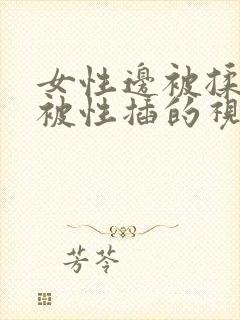 女性邊被揉
被性插的視
芳苓